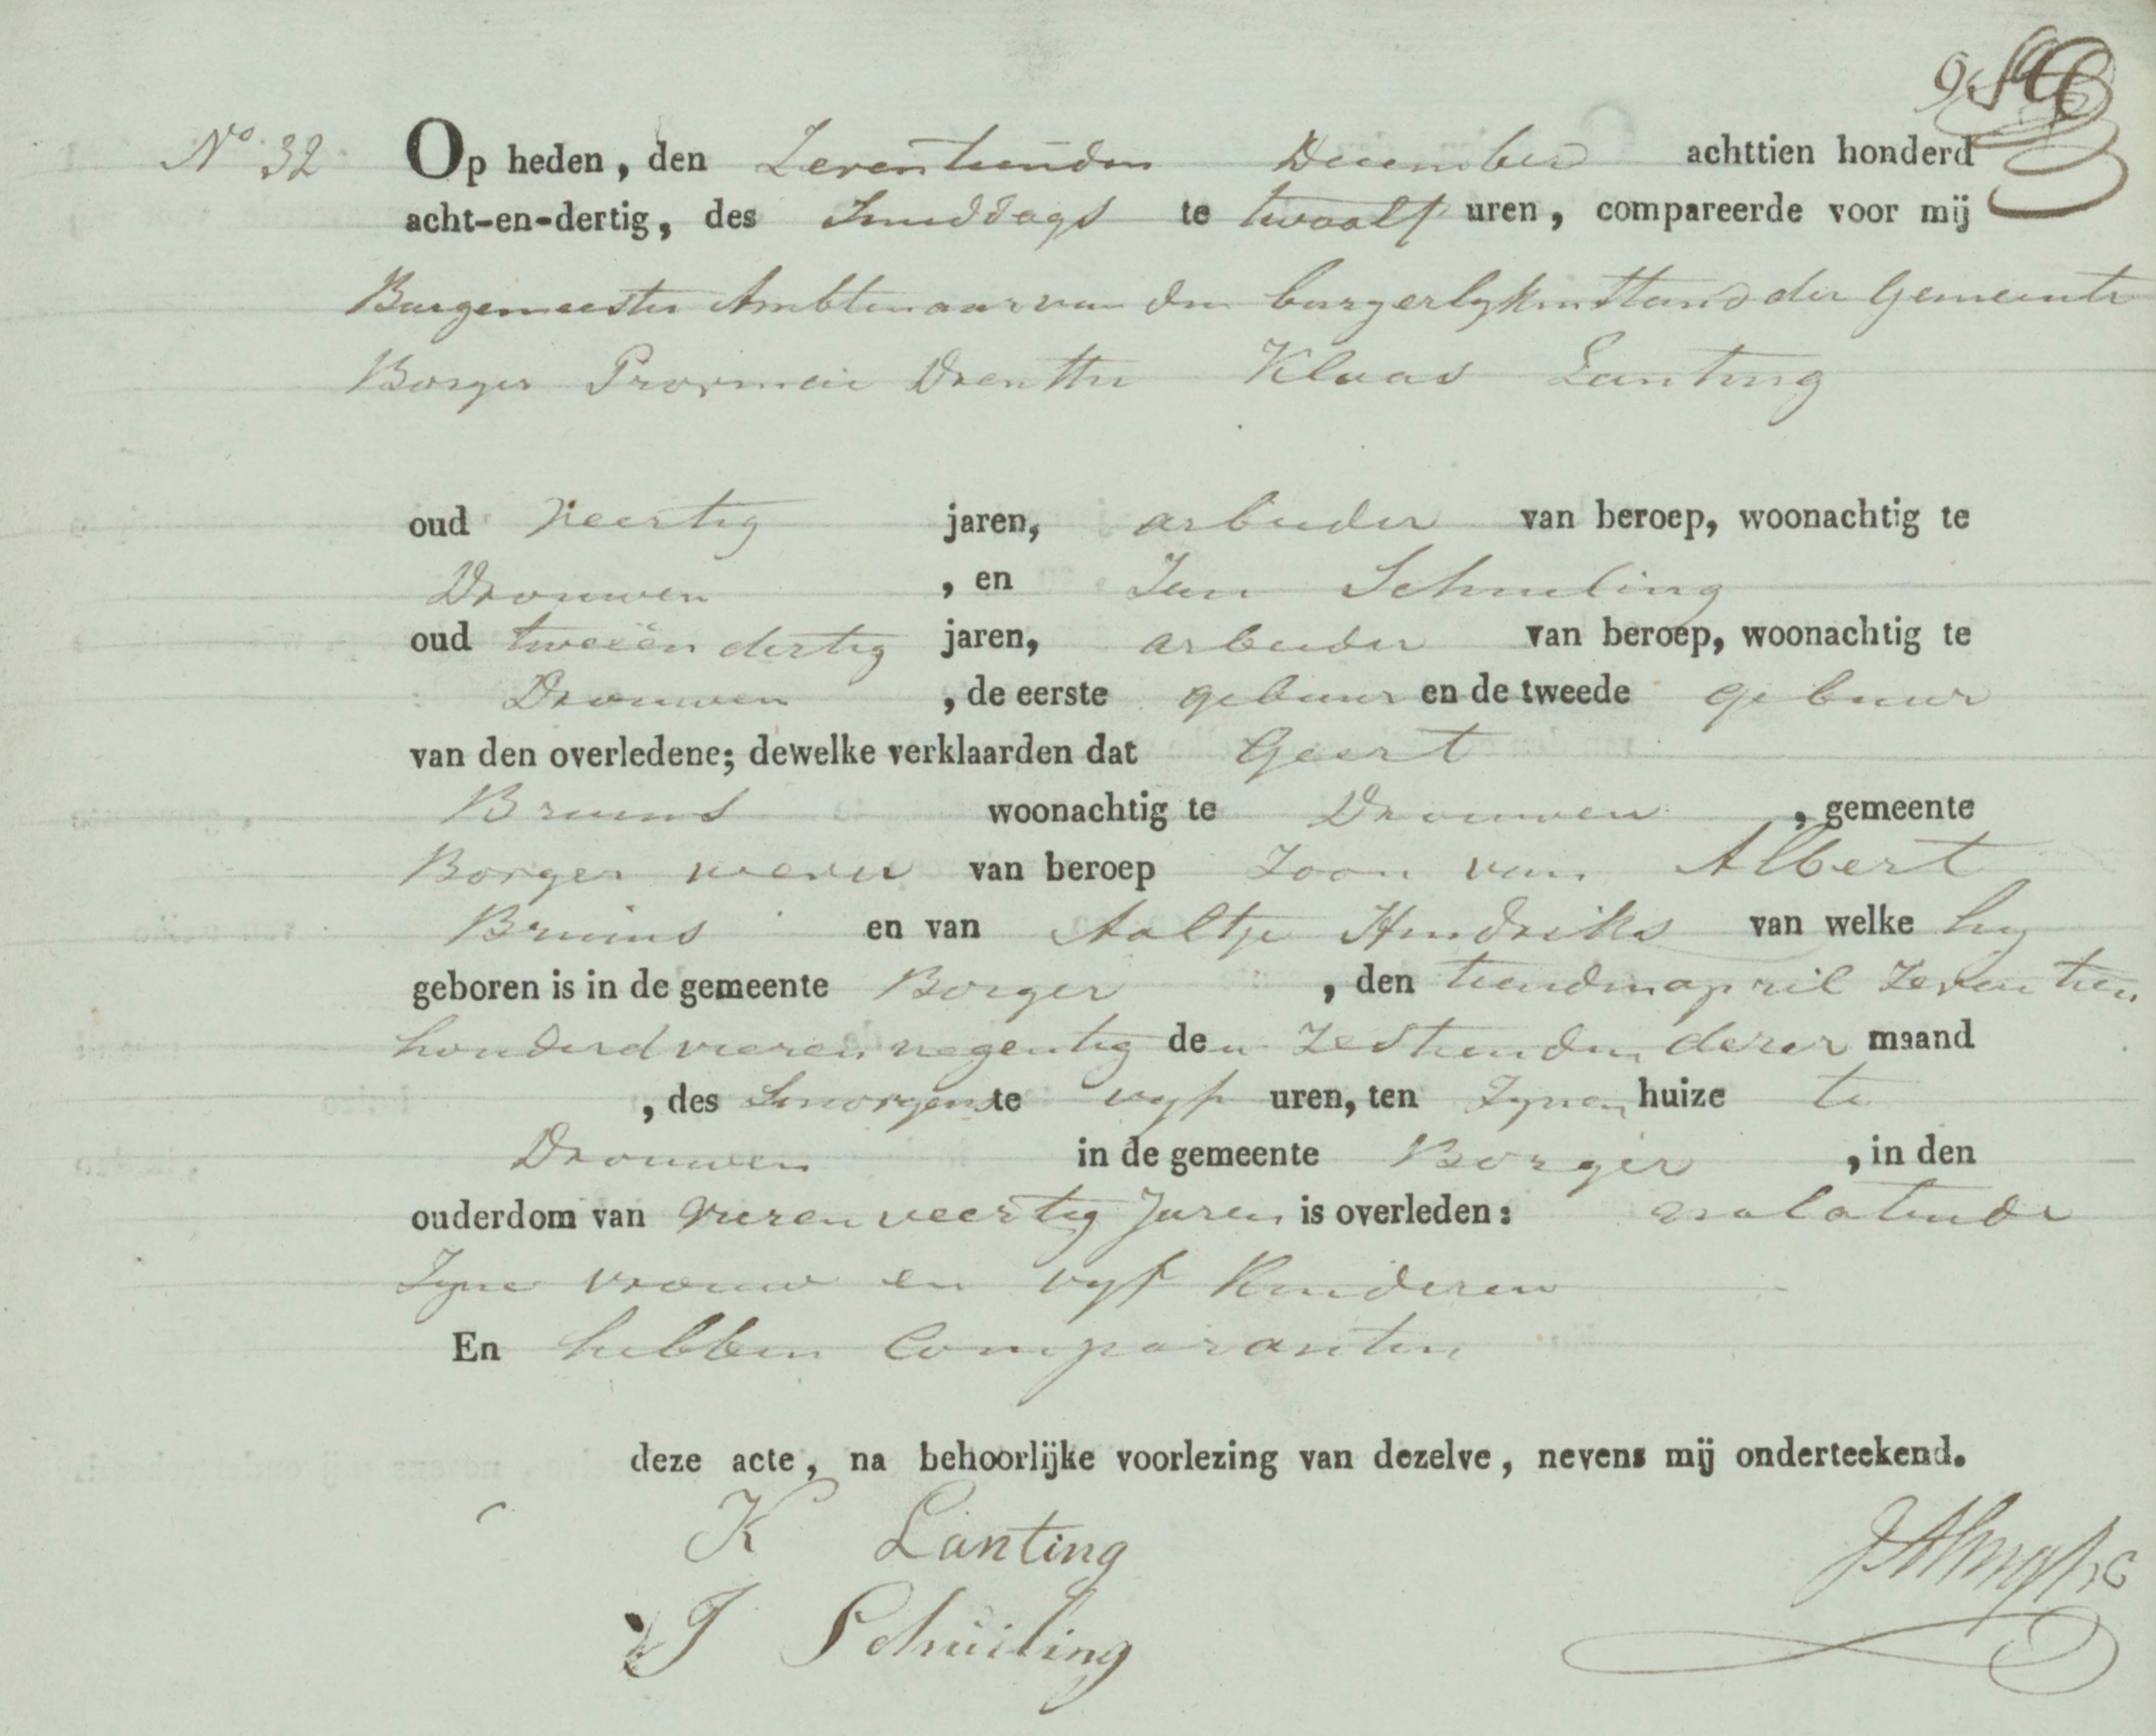 No 32 Op heden, den Zeventienden December achttien honderd
acht-en-dertig, des Smiddags te twaalf uren, compareerde voor mij
Burgemeester Ambtenaar van den burgerlyken Stand der Gemeente
Borger Provincie Drenthe Klaas Lanting
oud Veertig jaren, arbeider van beroep, woonachtig te
Drouwen , en Jan Schuiling
oud tweeën dertig jaren, arbeider van beroep, woonachtig te
Drouwen , de eerste gebuur en de tweede gebuur
van den overledene; dewelke verklaarden dat Geert
Bruins woonachtig te Drouwen , gemeente
Borger wever van beroep Zoon van Albert
Bruins en van Aaltje Hendriks van welke hy
geboren is in de gemeente Borger , den tienden april Zeventien
honderd vieren negentig den Zestienden dezer maand
, des Smorgens te vyf uren, ten Zynen huize te
Drouwen in de gemeente Borger , in den
ouderdom van vieren veertig Jaren is overleden: nalatende
Zyne vrouw en vyf Kinderen
En hebben Comparanten
deze acte, na behoorlijke voorlezing van dezelve, nevens mij onderteekend.
K Lanting
J Schuiling